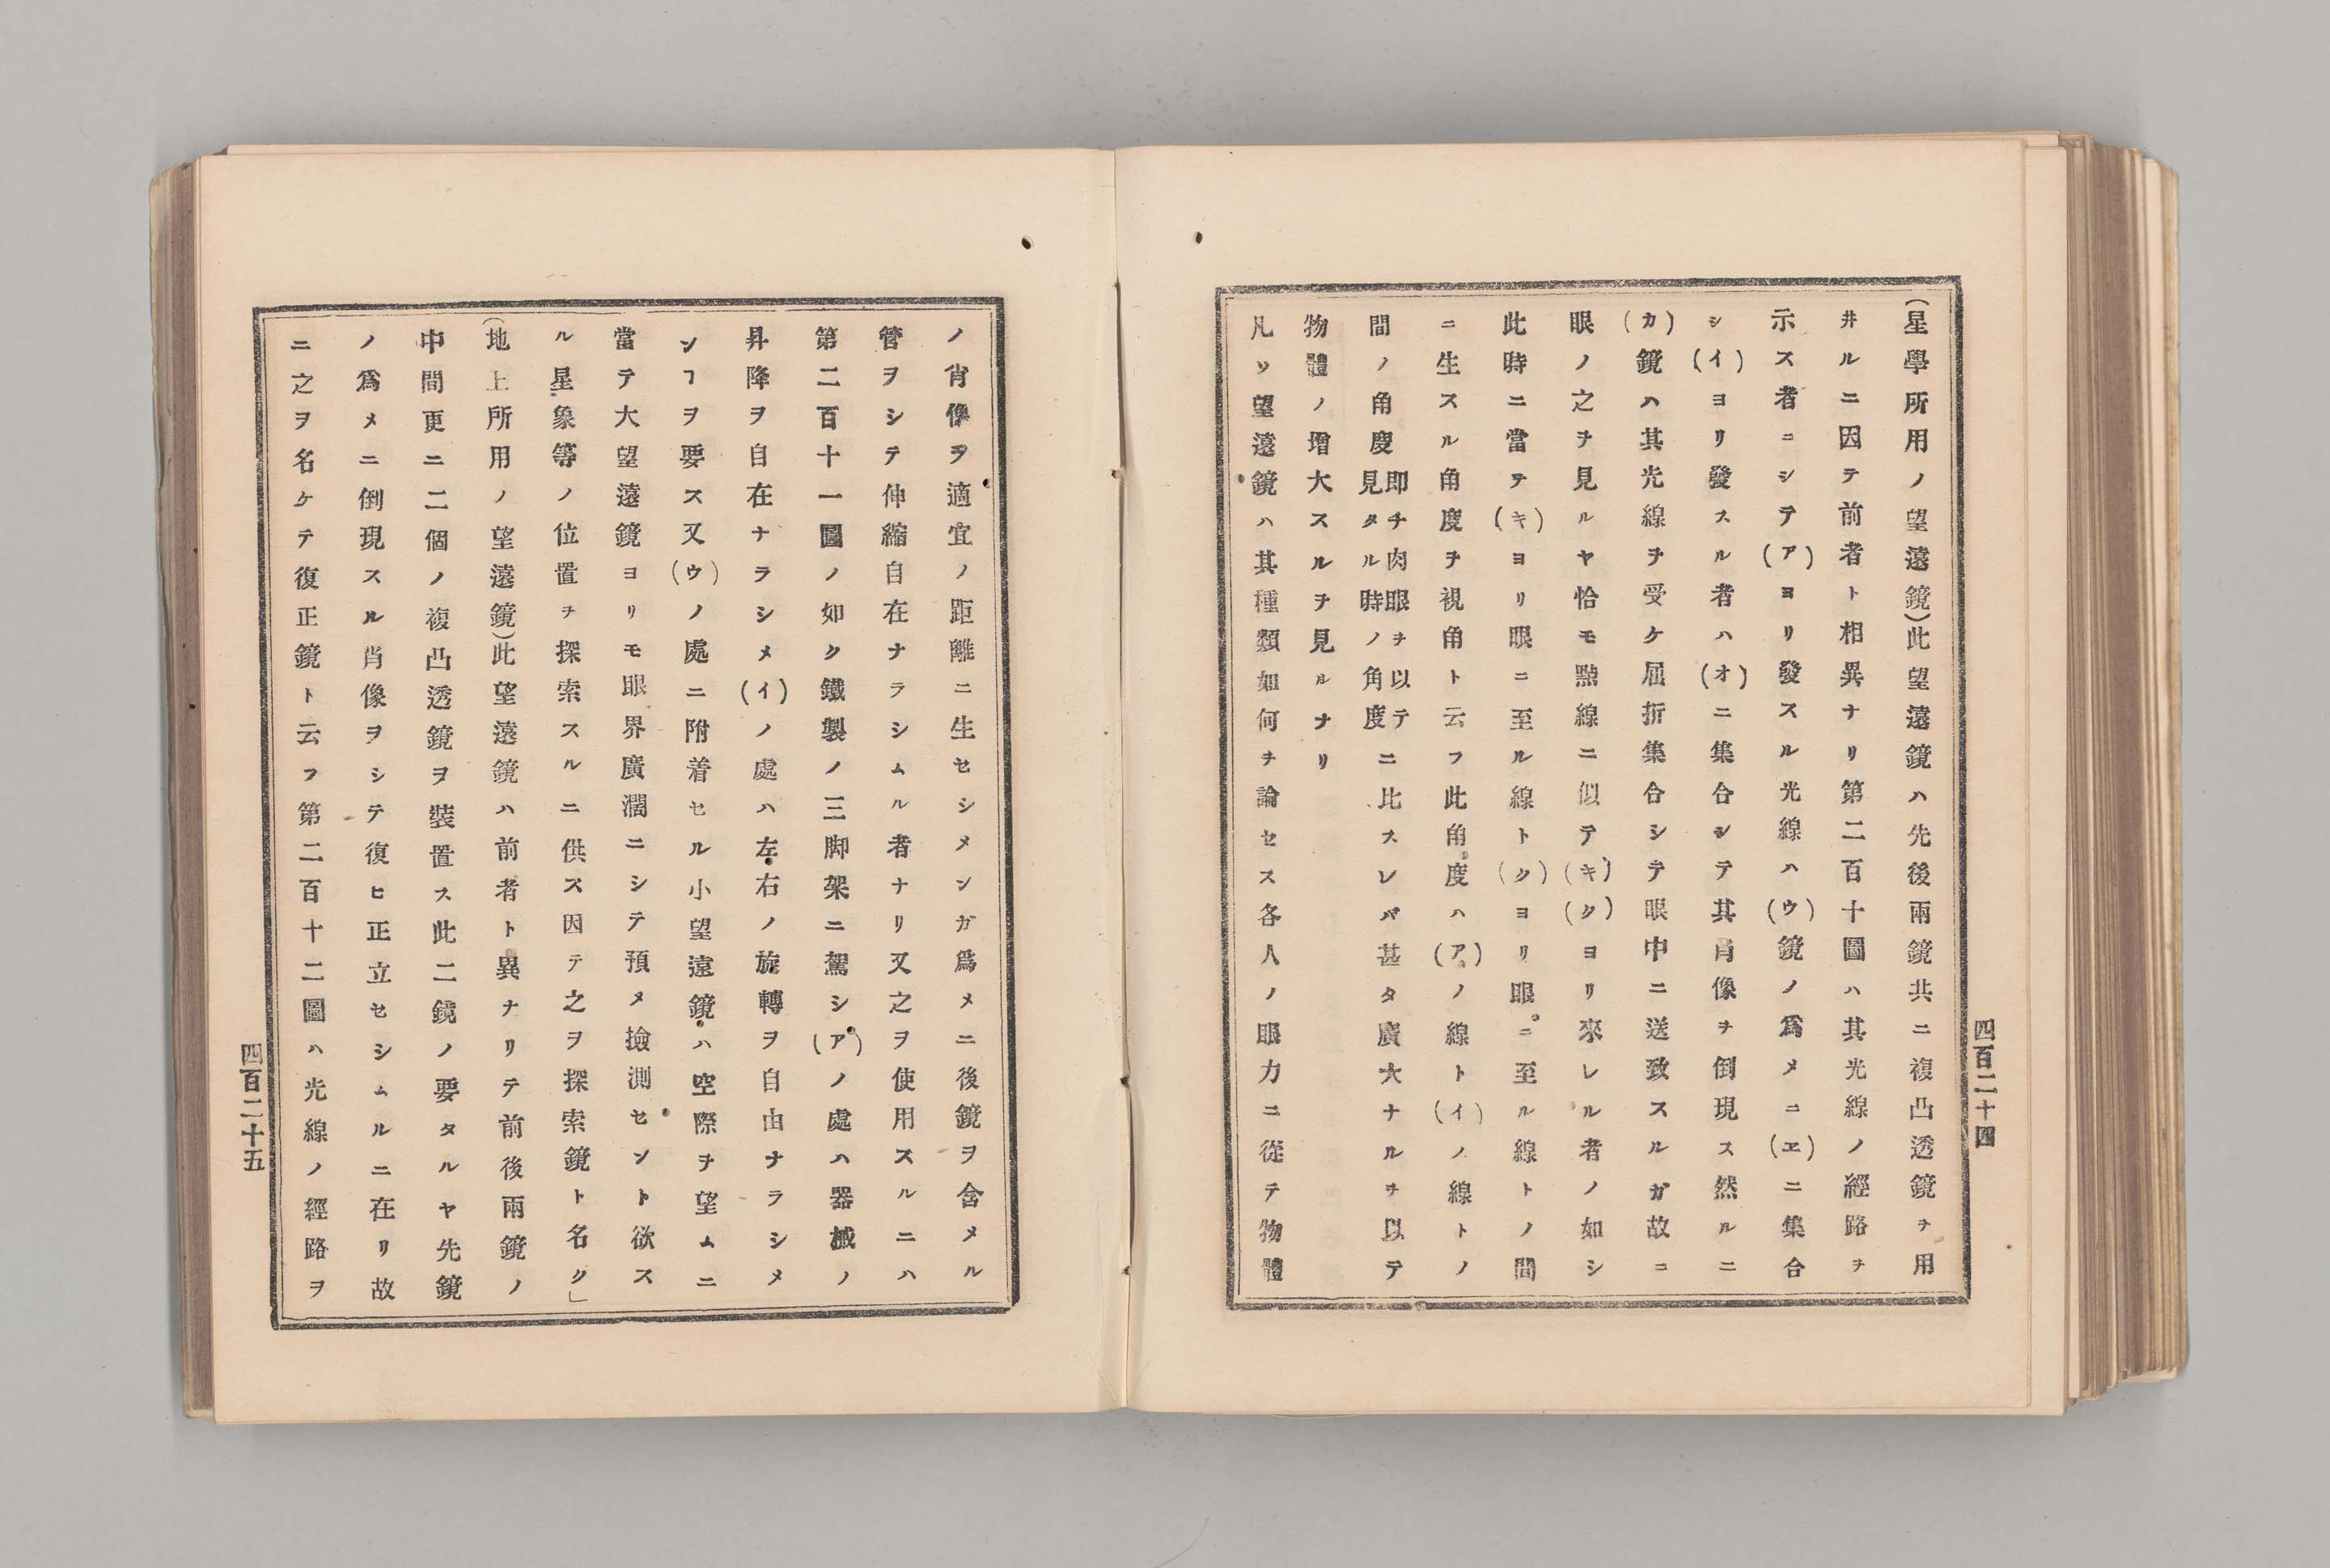 (星學所用ノ望遠鏡)此望遠鏡ハ先後兩鏡共ニ複凸透鏡ヲ用
井ルニ因テ前者ト相異ナリ第二百十圖ハ其光線ノ經路ヲ
示ス者ニシテ(ア)ヨリ發スル光線ハ(ウ)鏡ノ爲メニ(ヱ)ニ集合
シ(イ)ヨリ發スル者ハ(オ)ニ集合シテ其肖像ヲ倒現ス然ルニ
(カ)鏡ハ其光線ヲ受ケ屈折集合シテ眼中ニ送致スルガ故ニ
眼ノ之ヲ見ルヤ恰モ點線ニ似テ(キ)(ク)ヨリ來レル者ノ如シ
此時ニ當テ(キ)ヨリ眼ニ至ル線ト(ク)ヨリ眼ニ至ル線トノ間
ニ生スル角度ヲ視角ト云フ此角度ハ(ア)ノ線ト(イ)ノ線トノ
間ノ角度即チ肉眼ヲ以テ見タル時ノ角度ニ比スレバ甚タ廣大ナルヲ以テ
物體ノ增大スルヲ見ルナリ
凡ソ望遠鏡ハ其種類如何ヲ論セス各人ノ眼力ニ從テ物體
四百二十四
ノ肖像ヲ適宜ノ距離ニ生セシメンガ爲メニ後鏡ヲ含メル
管ヲシテ伸縮自在ナラシムル者ナリ又之ヲ使用スルニハ
第二百十一圖ノ如ク鐵製ノ三脚架ニ駕シ(ア)ノ處ハ器械ノ
昇降ヲ自在ナラシメ(イ)ノ處ハ左右ノ旋轉ヲ自由ナラシメ
ンヿヲ要ス又(ウ)ノ處ニ附着セル小望遠鏡ハ空際ヲ望ムニ
當テ大望遠鏡ヨリモ眼界廣濶ニシテ預メ撿測セント欲ス
ル星象等ノ位置ヲ探索スルニ供ス因テ之ヲ探索鏡ト名ク」
(地上所用ノ望遠鏡)此望遠鏡ハ前者ト異ナリテ前後兩鏡ノ
中間更ニ二個ノ複凸透鏡ヲ裝置ス此二鏡ノ要タルヤ先鏡
ノ爲メニ倒現スル肖像ヲシテ復ヒ正立セシムルニ在リ故
ニ之ヲ名ケテ復正鏡ト云フ第二百十二圖ハ光線ノ經路ヲ
四百二十五